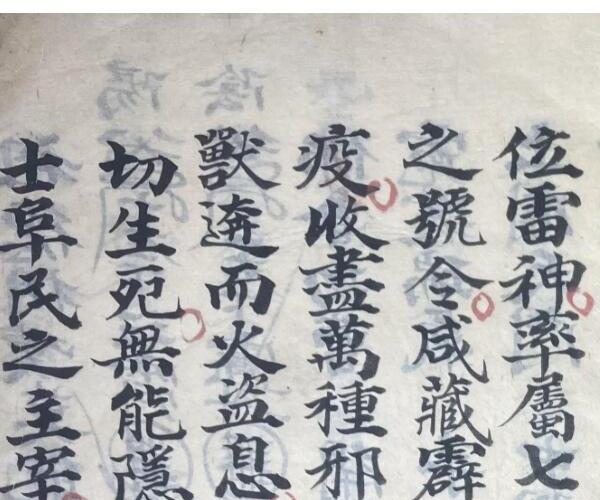 位雷神率屬七
之號令咸藏霹
疫收盡萬種邪
獸逩而火盜息
切生死無能隱
士阜民之主宰